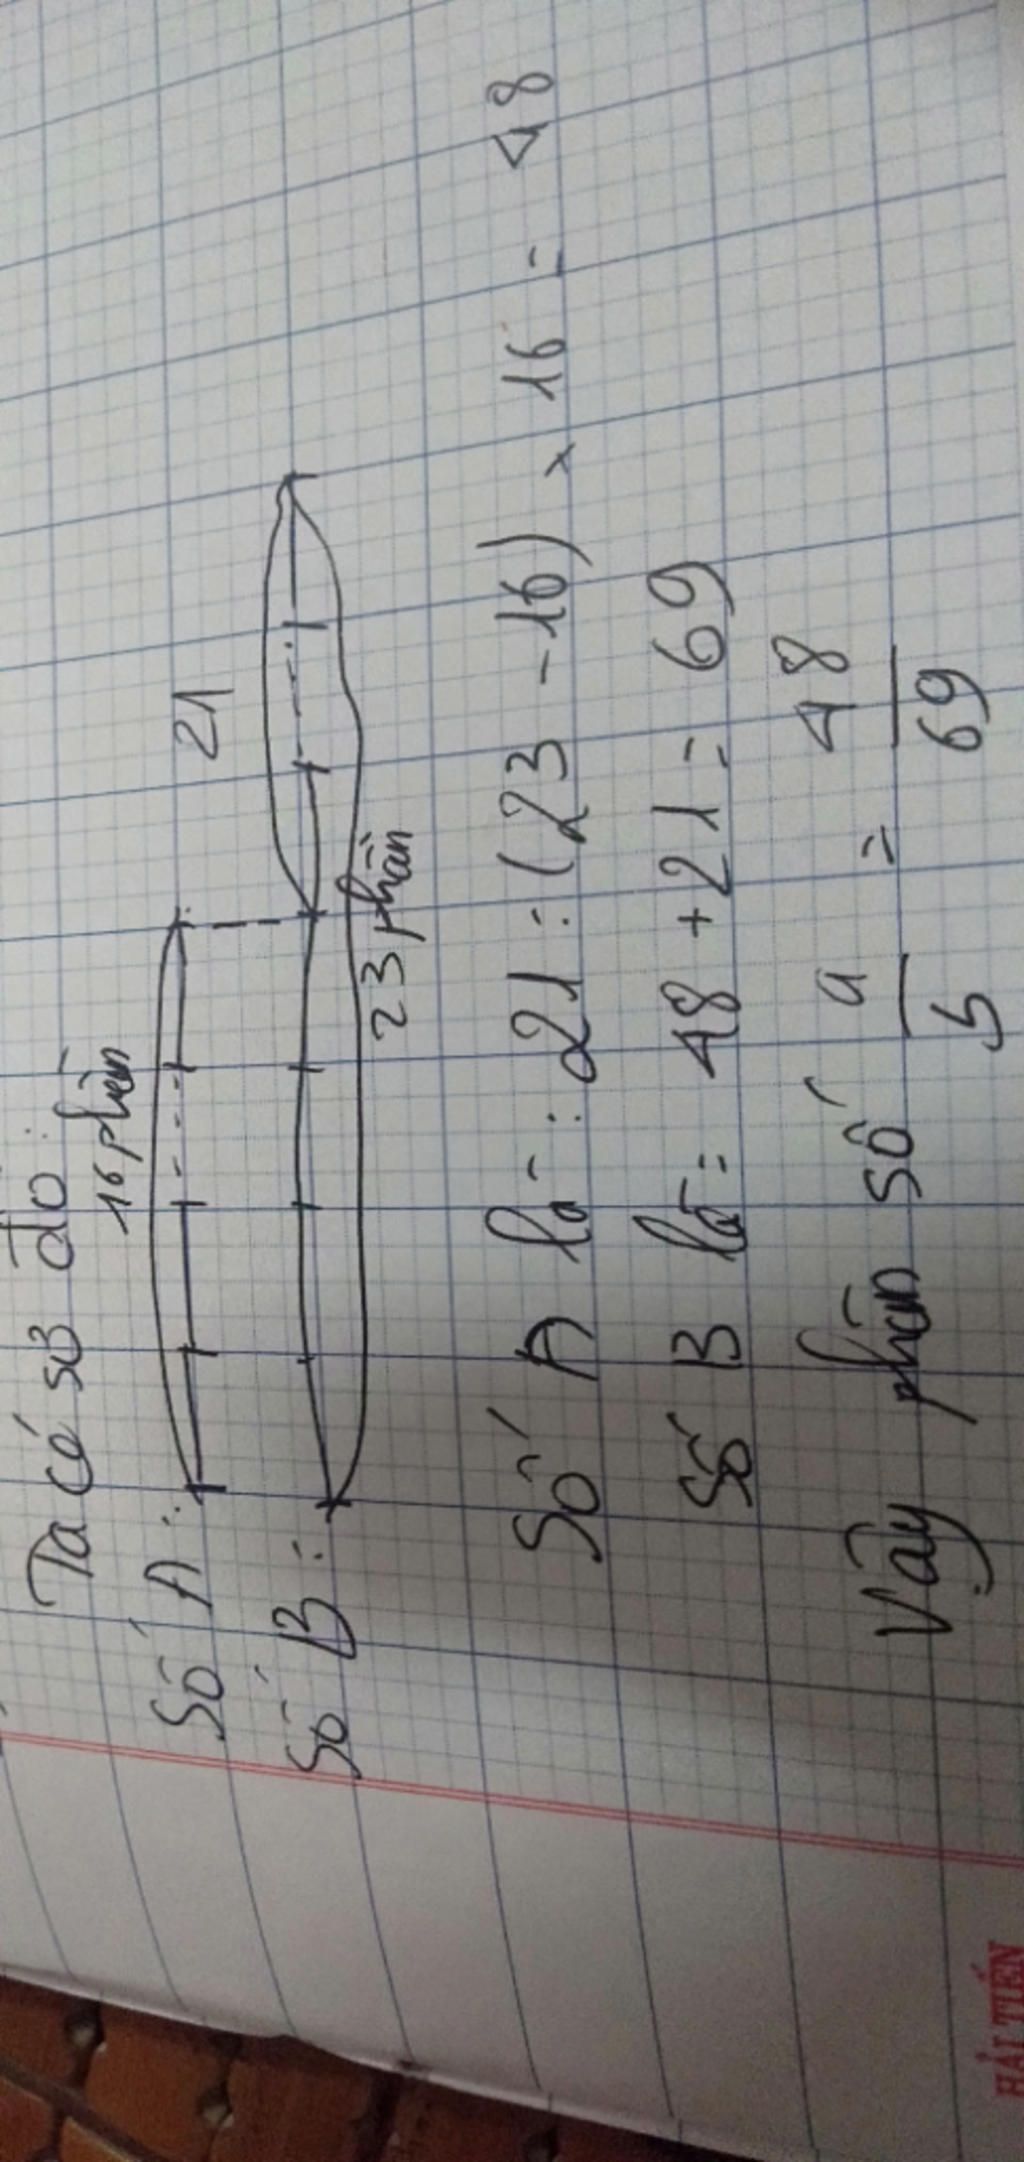 Ta có sơ đồ:
16 phần
21
Số A:
Số B:
23 phần
Số A là: 21 : (23 - 16) x 16 = 48
Số B là: 48 + 21 = 69
Vậy phân số a/b = 48/69
HẢI TIẾN